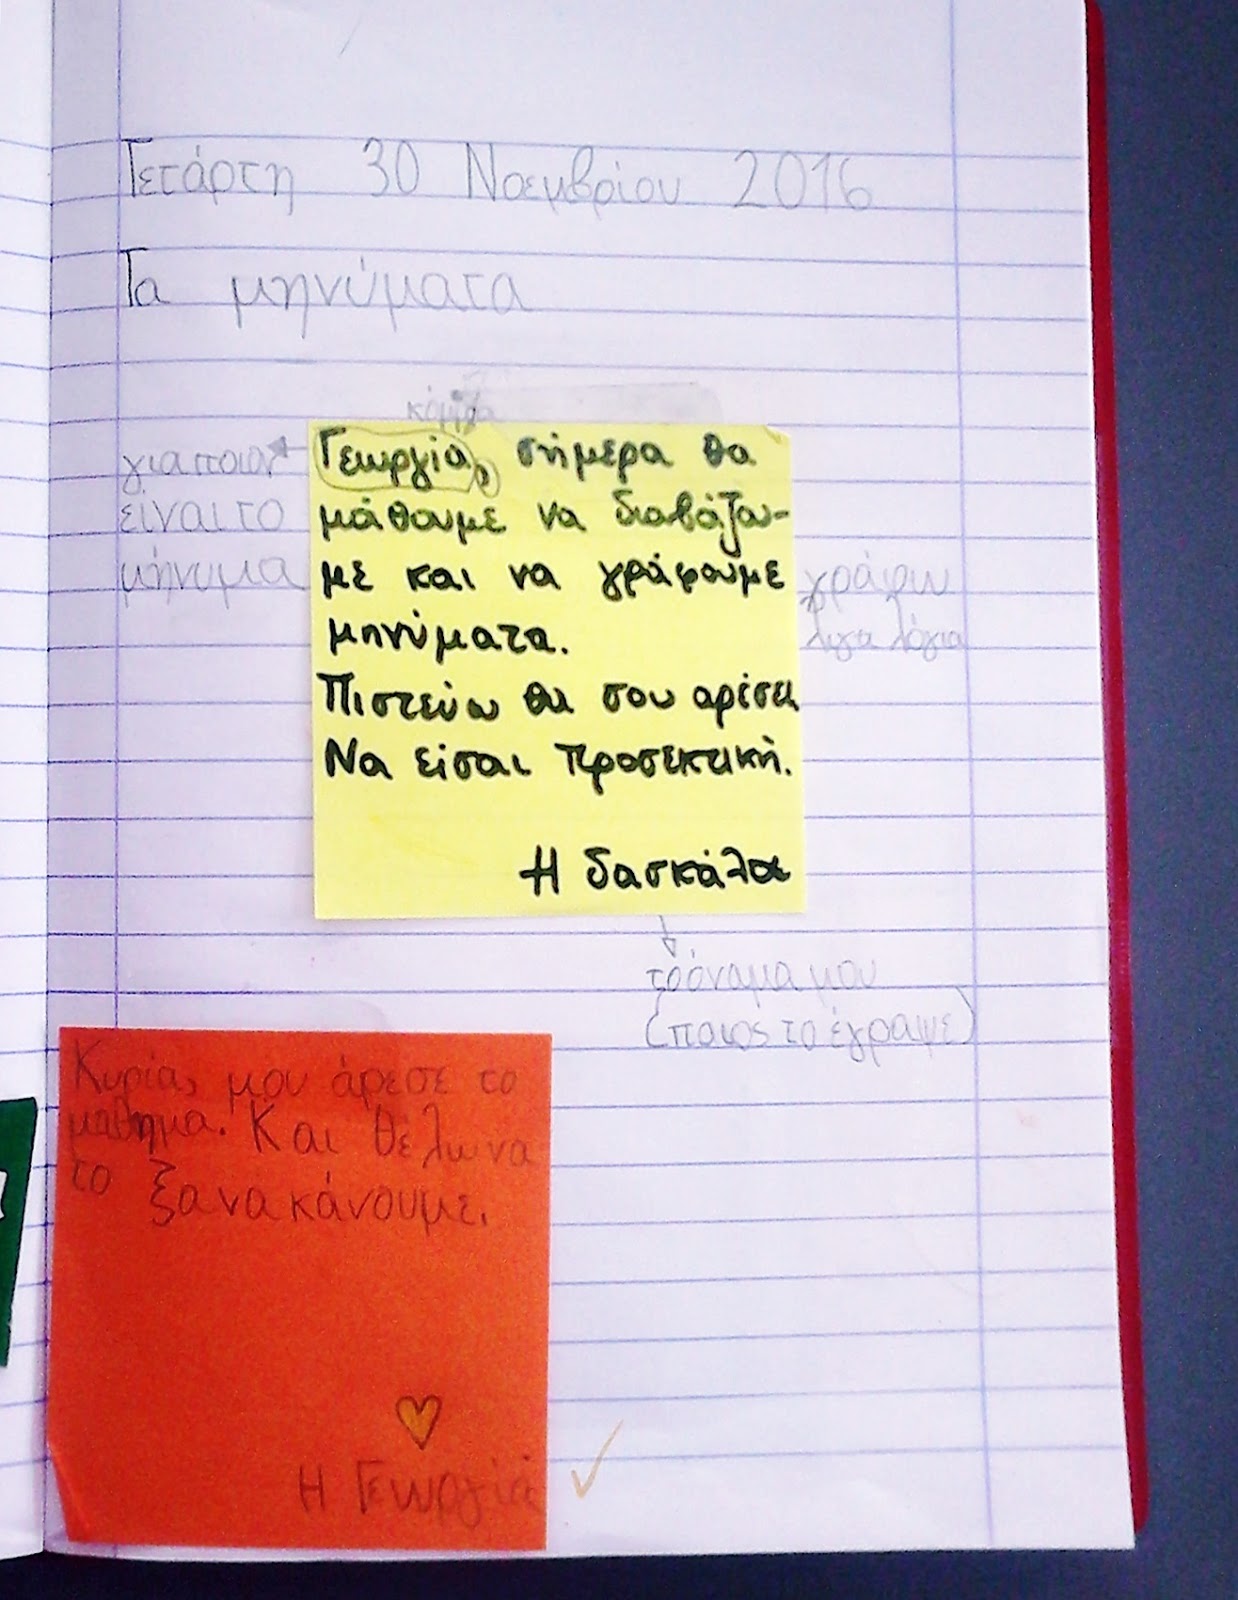 Τετάρτη 30 Νοεμβρίου 2016
Τα μηνύματα
κόμμα
για ποιον
είναι το
μήνυμα
Γεωργία, σήμερα θα
μάθουμε να διαβάζου-
με και να γράφουμε
μηνύματα.
Πιστεύω θα σου αρέσει
Να είσαι προσεκτική.
Η δασκάλα
γράφω
λίγα λόγια
το όνομα μου
(ποιος το έγραψε)
Κυρία, μου άρεσε το
μάθημα. Και θέλω να
το ξανακάνουμε.
Η Γεωργία